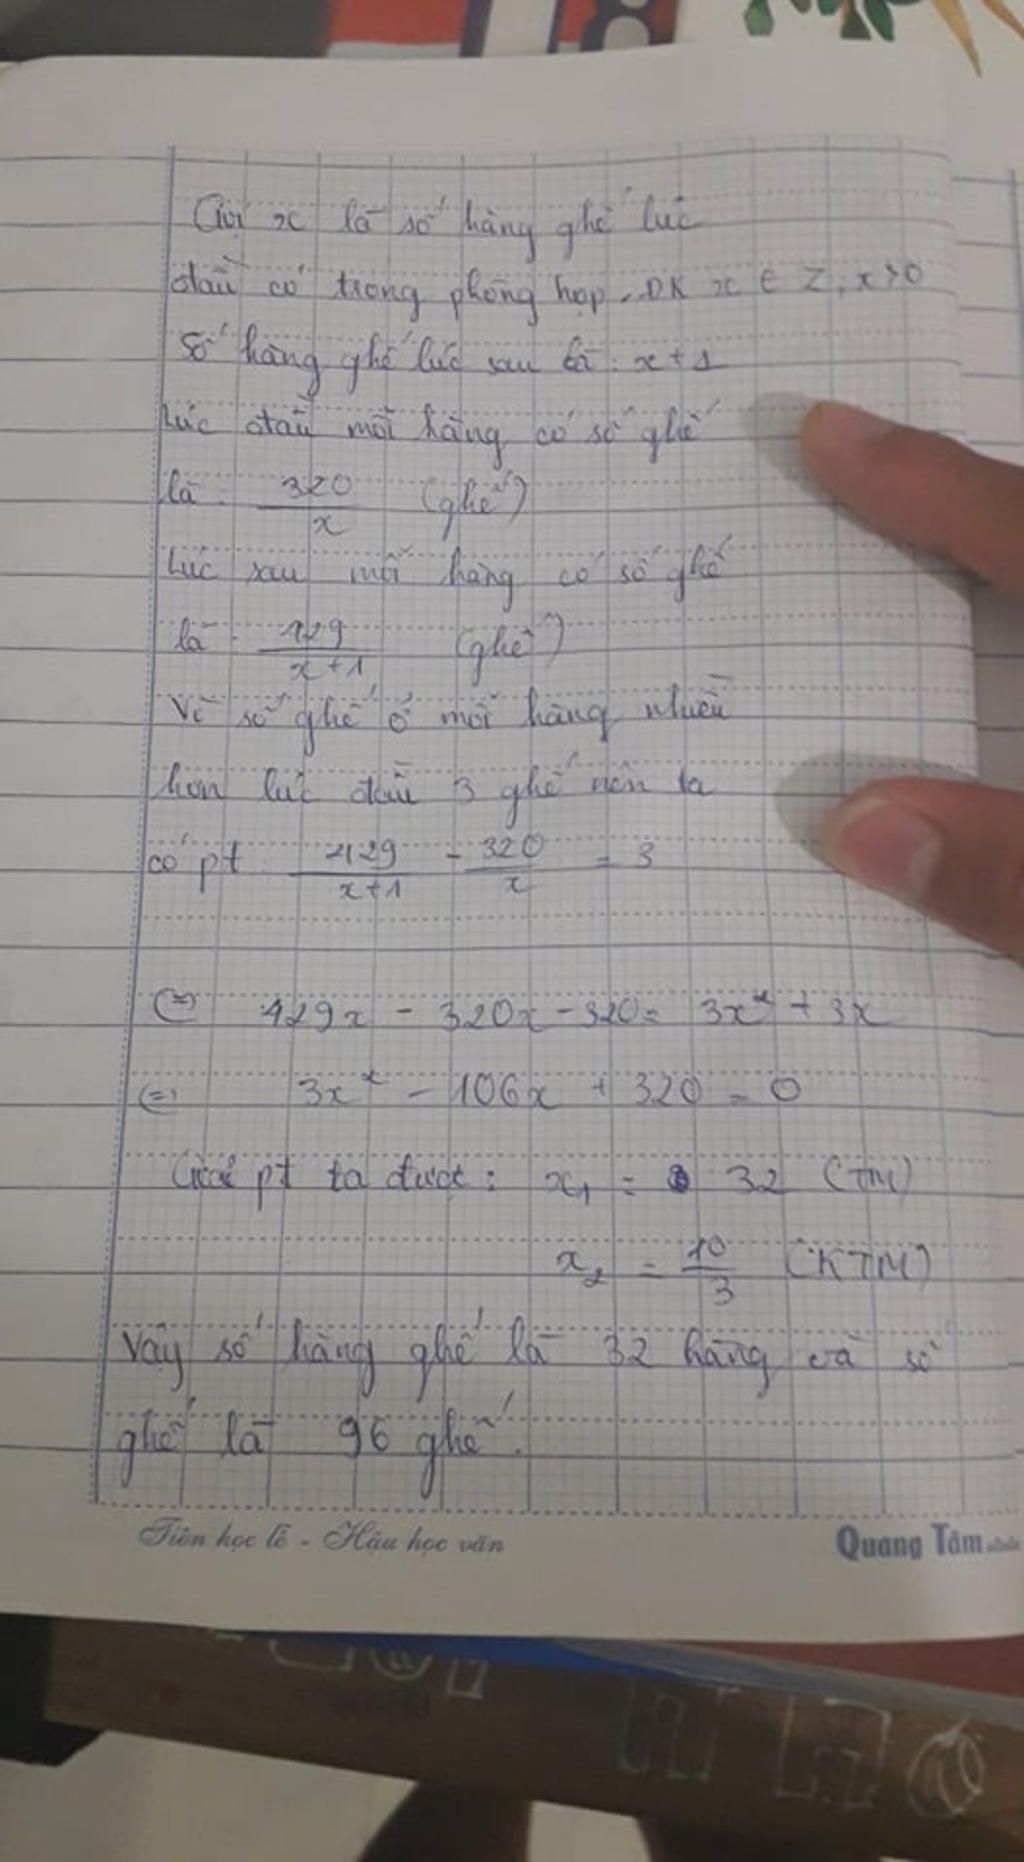 Gọi x là số hàng ghế lúc
đầu có trong phòng họp. ĐK x ∈ Z, x > 0
Số hàng ghế lúc sau là: x + 1
Lúc đầu mỗi hàng có số ghế
là 320/x (ghế)
Lúc sau mỗi hàng có số ghế
là 429/x+1 (ghế)
Vì số ghế ở mỗi hàng nhiều
hơn lúc đầu 3 ghế nên ta
có pt 429/x+1 - 320/x = 3
(=) 429x - 320x - 320 = 3x² + 3x
(=) 3x² - 106x + 320 = 0
Giải pt ta được: x₁ = 32 (TM)
x₂ = 10/3 (KTM)
Vậy số hàng ghế là 32 hàng và số
ghế là 96 ghế.
Tiên học lễ - Hậu học văn
Quang Tâm